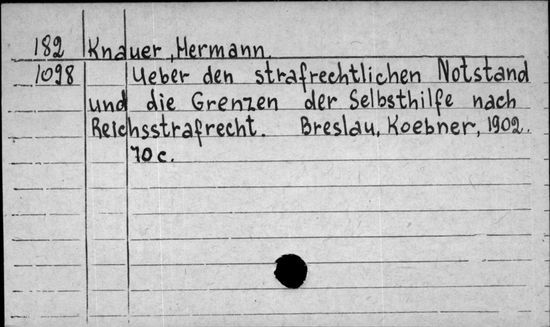 182 Knauer, Hermann.
1098 Ueber den strafrechtlichen Notstand
und die Grenzen der Selbsthilfe nach
Reichsstrafrecht. Breslau, Koebner, 1902.
70 c.